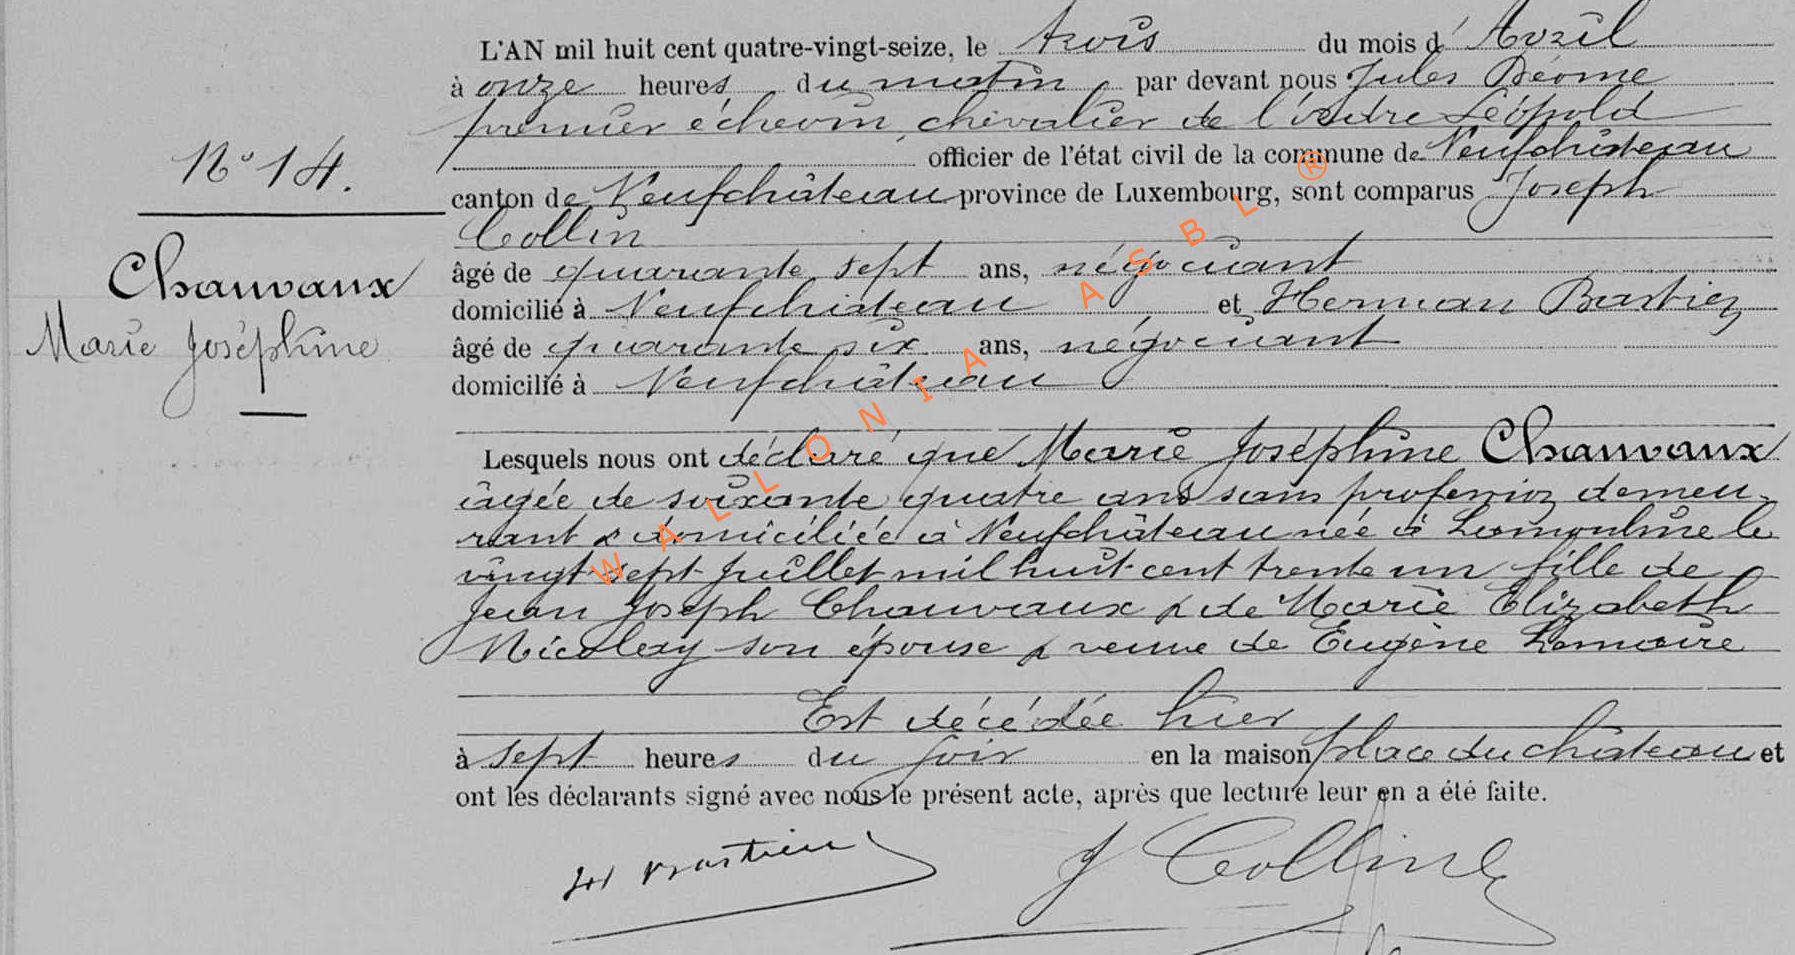 L'AN mil huit cent quatre-vingt-seize, le trois du mois d' Avril
à onze heures du matin par devant nous Jules
premier échevin, chevalier de l'ordre Léopold
officier de l'état civil de la commune de Neufchâteau
N° 14.
canton de Neufchâteau province de Luxembourg, sont comparus Joseph
Collin
Chauvaux
Marie Joséphine
âgé de quarante sept ans, négociant
domicilié à Neufchâteau et Herman Bastien
âgé de quarante six ans, négociant
domicilié à Neufchâteau
Lesquels nous ont déclaré que Marie Joséphine Chauvaux
âgée de soixante quatre ans sans profession demeu-
rant & domiciliée à Neufchâteau née à le
vingt-sept Juillet mil huit-cent trente un fille de
Jean Joseph Chauvaux & de Marie Elizabeth
Nicolay son épouse & veuve de Eugène Lemaire
Est décédée hier
à sept heures du soir en la maison place du château et
ont les déclarants signé avec nous le présent acte, après que lecture leur en a été faite.
H Bastien
J Collin
WALLONIA ASBL ®